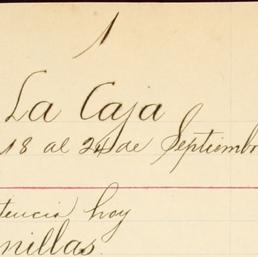 1
La Caja
18 al 24 de Septiembr
tencia hoy
nillas